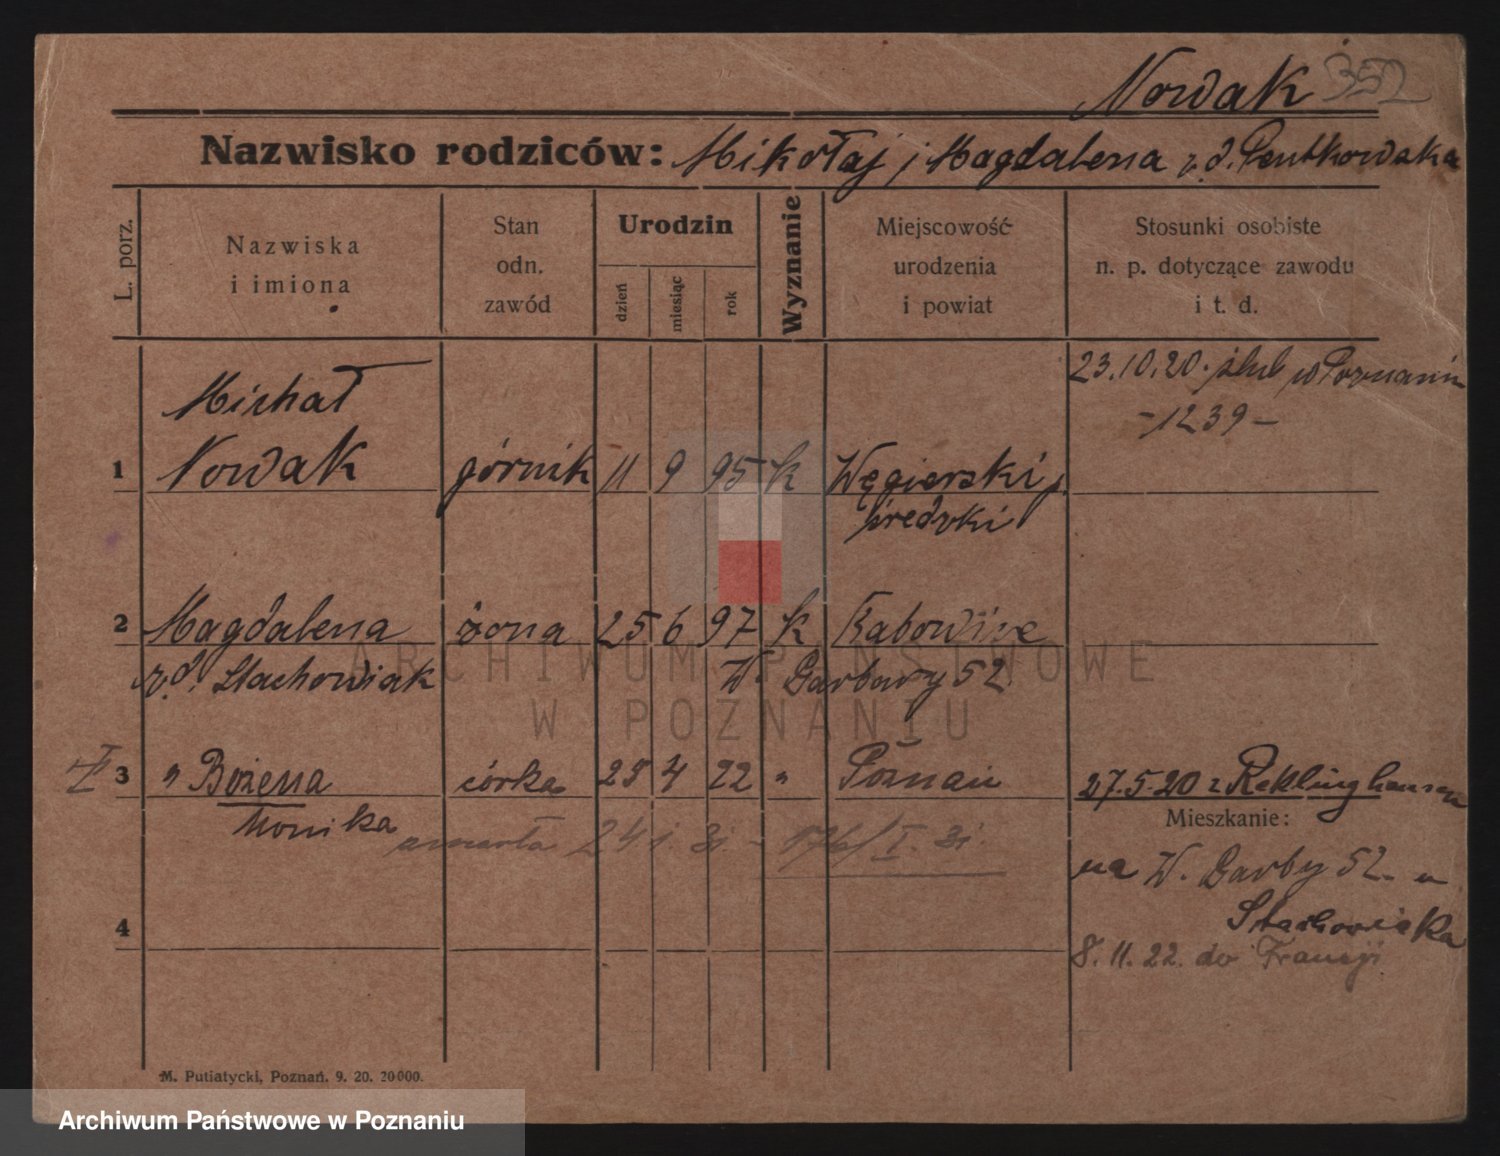 Nowak 352
Nazwisko rodziców: Mikołaj i Magdalena z.d. Pentkowska
L. porz.
Nazwiska
i imiona
Stan
odn.
zawód
Urodzin
dzień
miesiąc
rok
Wyznanie
Miejscowość
urodzenia
i powiat
Stosunki osobiste
n. p. dotyczące zawodu
i t. d.
23.10.20. ślub w Poznaniu
-1239-
Michał
1 Nowak górnik 11 9 95 k Węgierski p.
średzki
2 Magdalena żona 25 6 97 k
z.d. Stachowiak W. Garbary 52
3 " Bożena córka 25 4 22 " Poznań
Monika
27.5.20 z Reklinghausen
Mieszkanie:
umarła 24 i. 31 - 176/I. 31.
na W. Garby 52. u
Stachowiaka
4
8.11.22. do Francji
M. Putiatycki, Poznań. 9. 20. 20000.
ARCHIWUM PAŃSTWOWE
W POZNANIU
Archiwum Państwowe w Poznaniu